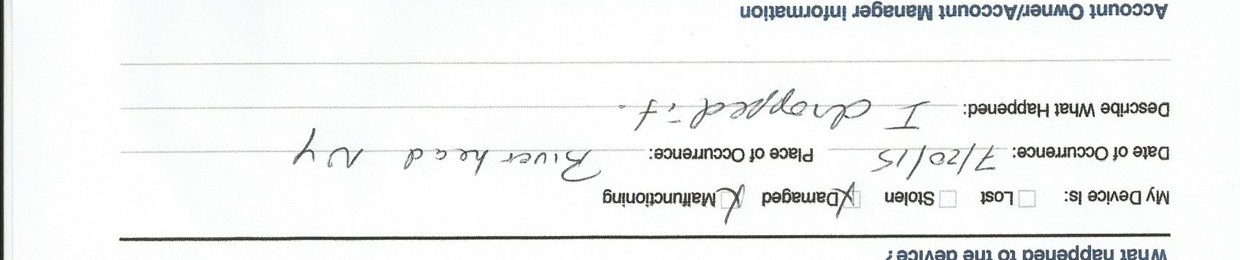 What happened to the device?
My Device Is: Lost Stolen Damaged Malfunctioning
Date of Occurrence: 7/20/15 Place of Occurrence: Riverhead NY
Describe What Happened: I dropped it.
Account Owner/Account Manager Information